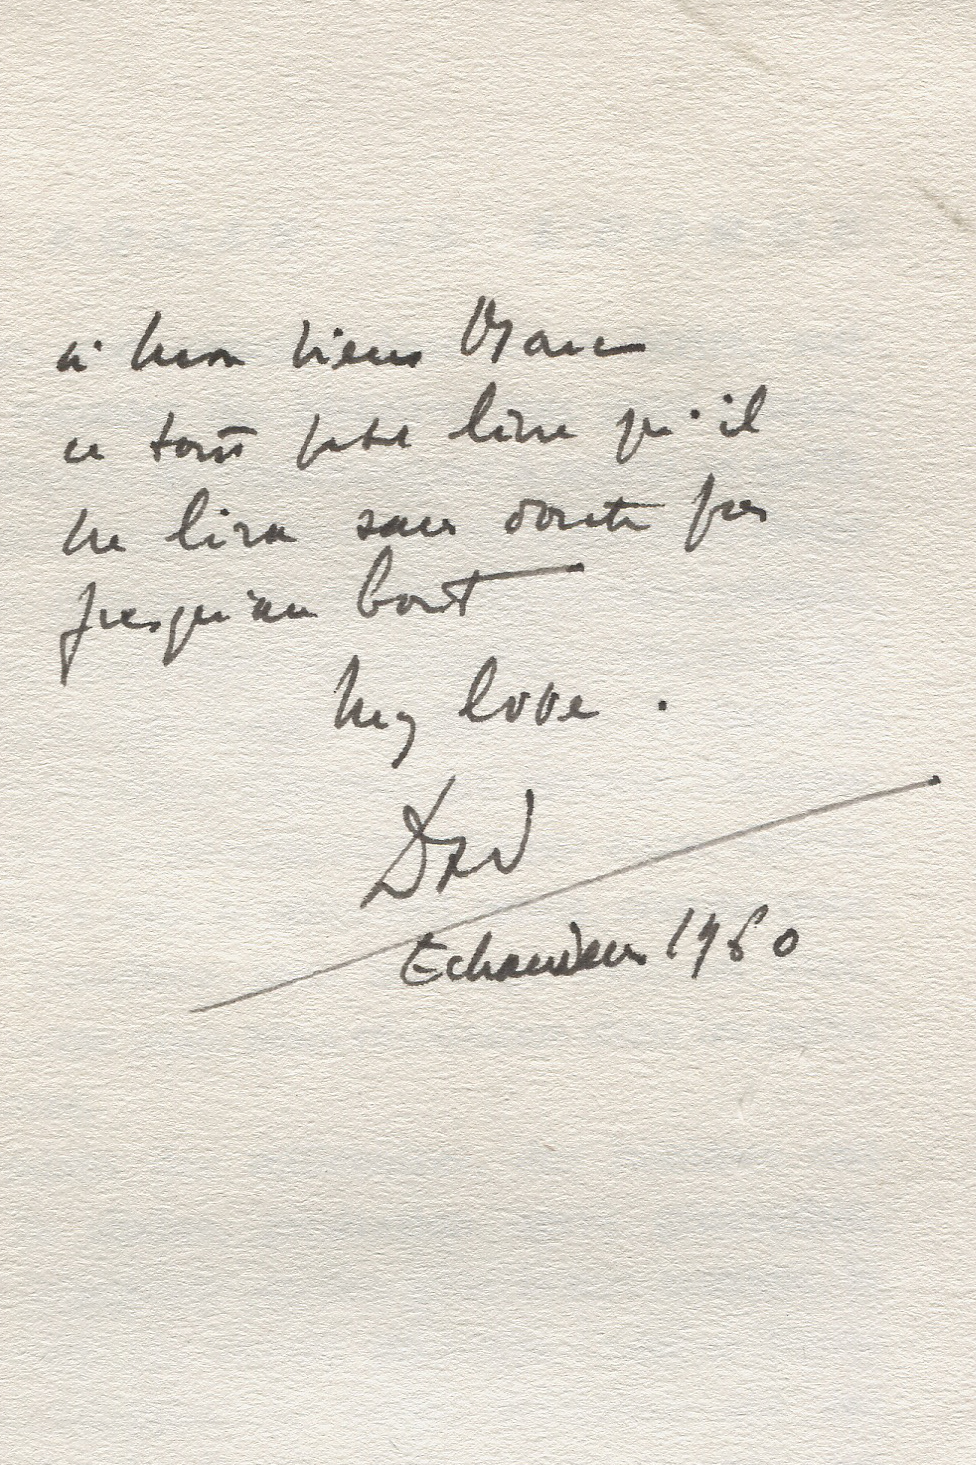 à mon vieux Marc
ce tout petit livre qu'il
ne lira sans doute pas
jusqu'au bout
My love.
Dad
Echandens 1960